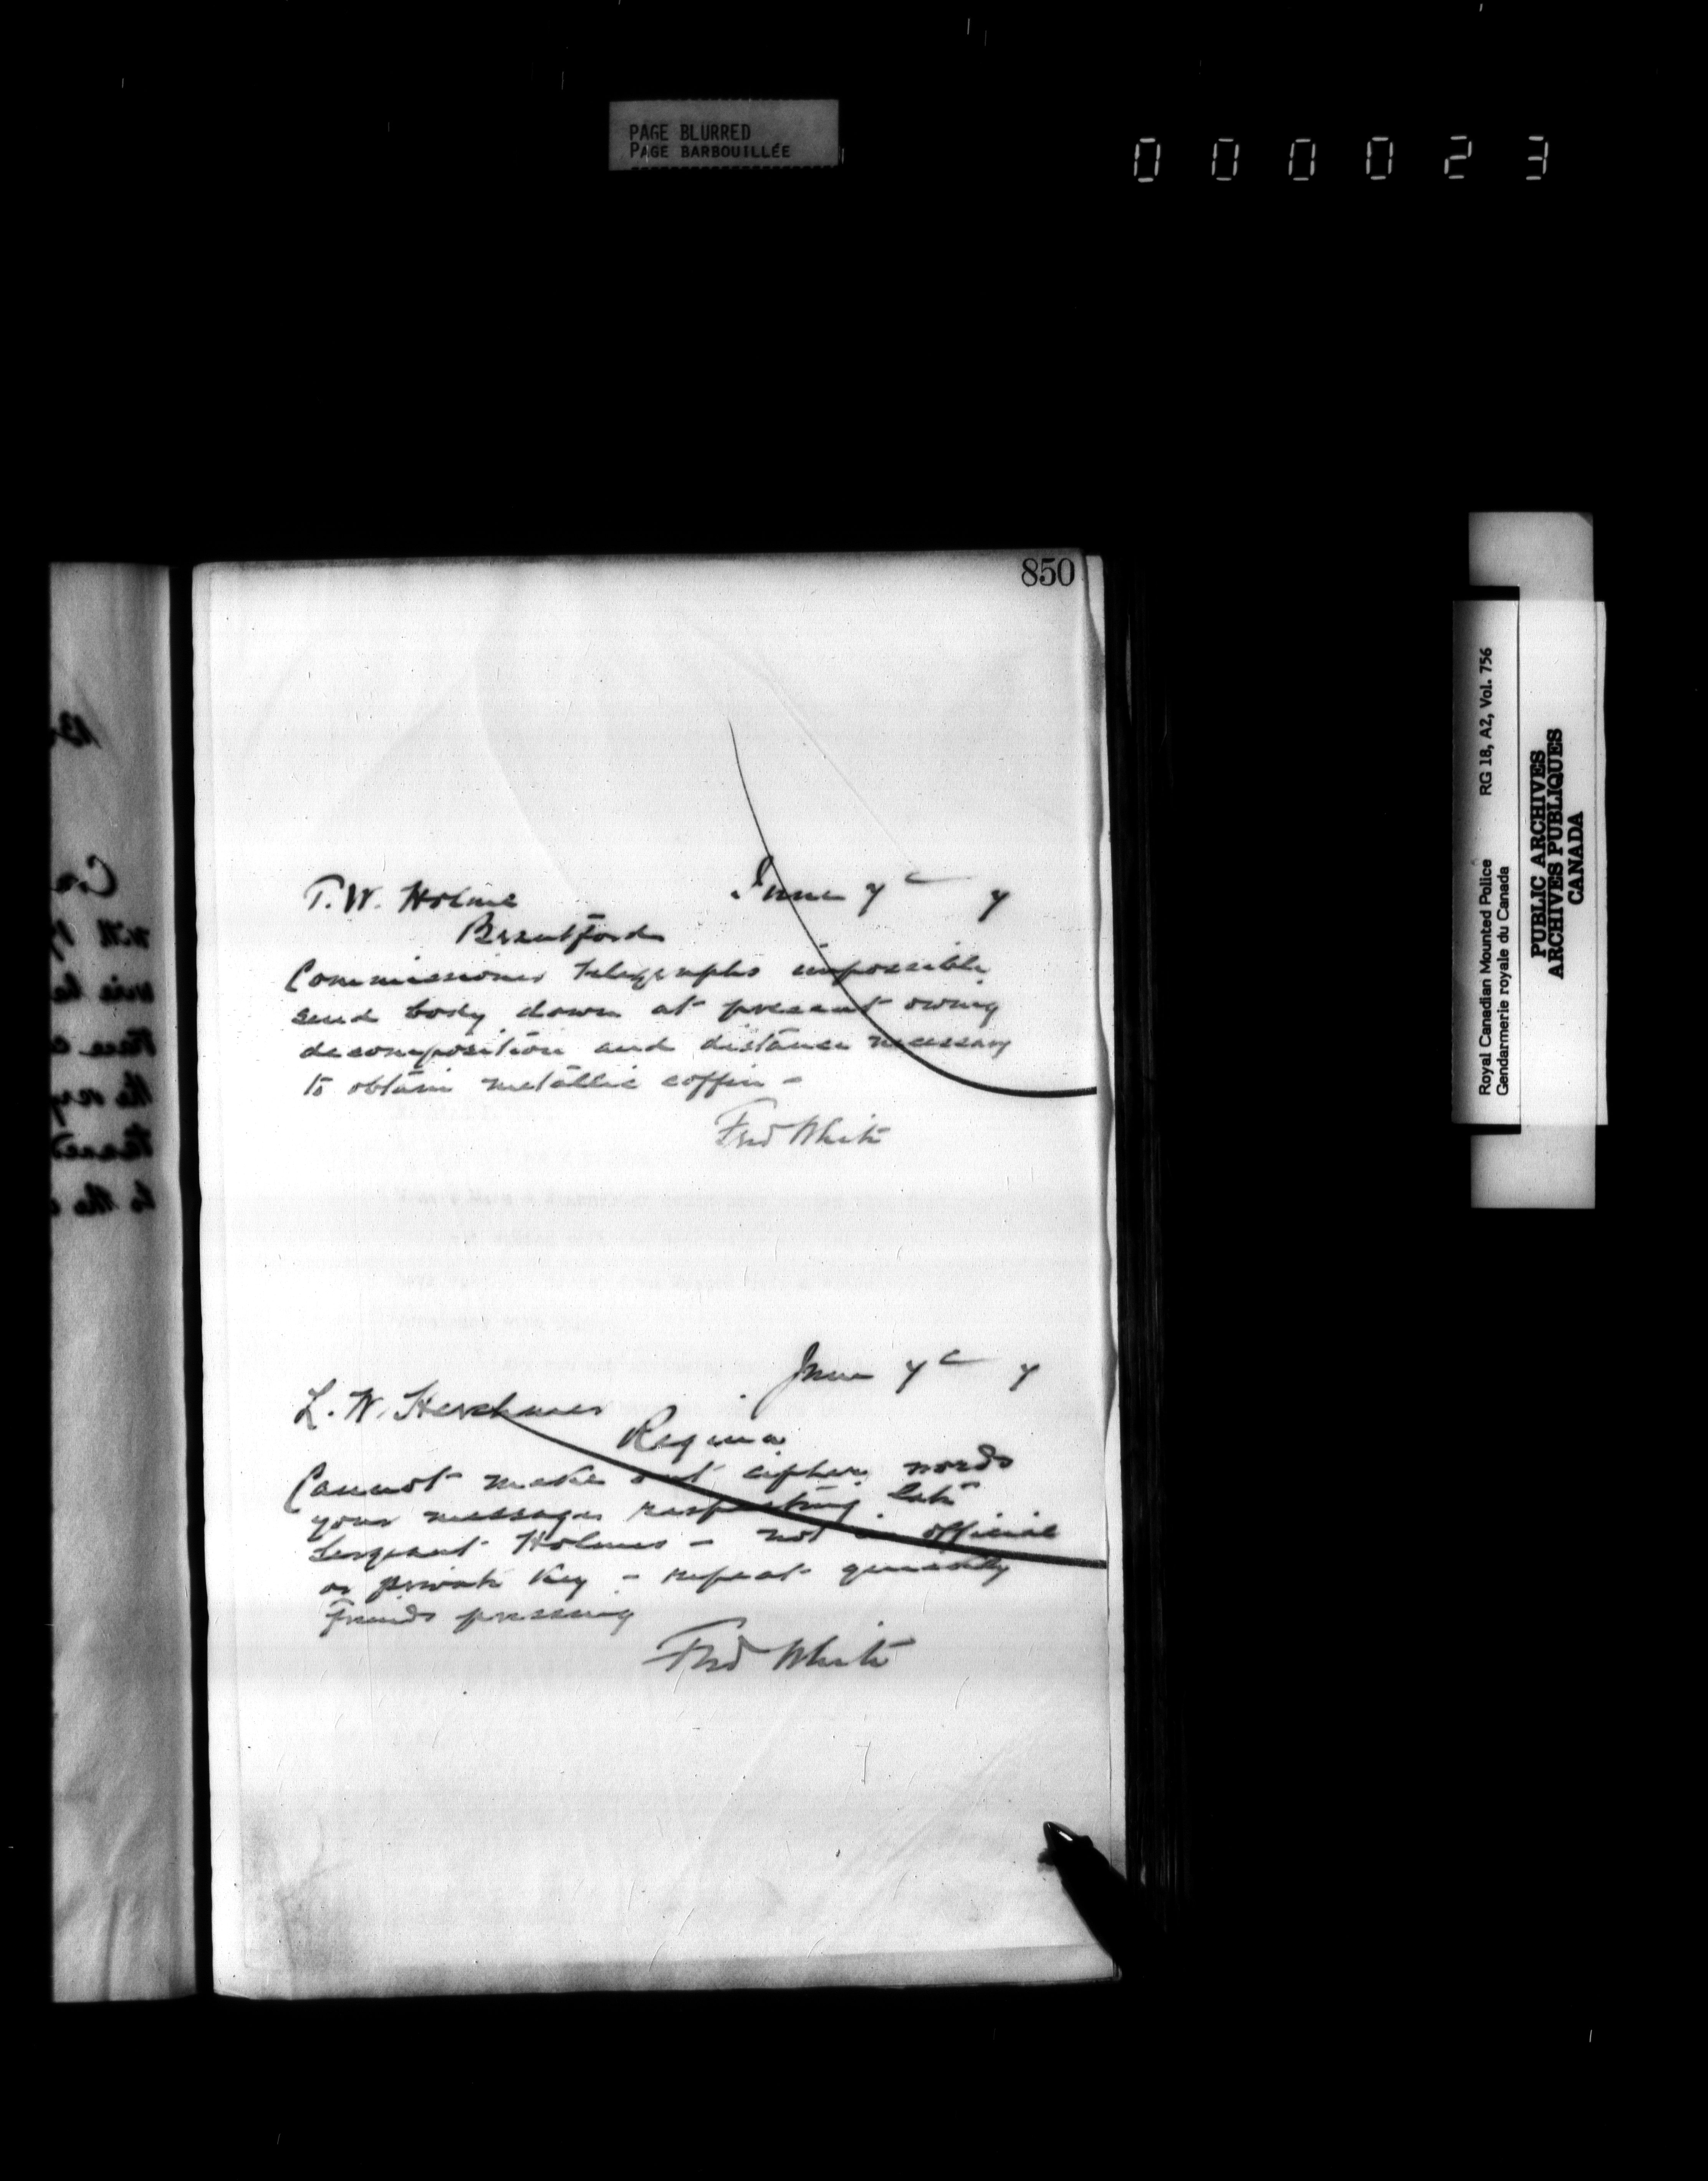 PAGE BLURRED
PAGE BARBOUILLÉE
000023
850
T. W. Holme
June 7
Brantford
Commissioner telegraphs impossible
send body down at present owing
decomposition and distance necessary
to obtain metallic coffin -
Fred White
June 7
L. W. Herchmer
Regina
Cannot make out cipher words
your messages respecting late
Sergeant Holmes - not in official
or private key - repeat quickly
friends pressing
Fred White
Royal Canadian Mounted Police RG 18, A2, Vol. 756
Gendarmerie royale du Canada
PUBLIC ARCHIVES
ARCHIVES PUBLIQUES
CANADA